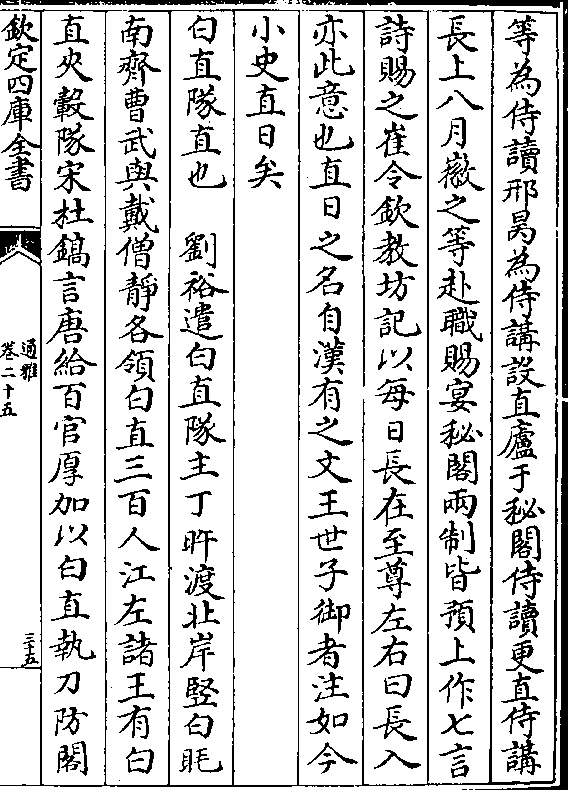 等為侍讀邢昺為侍講設直廬于秘閣侍讀更直侍講
長上八月徽之等赴職賜宴秘閣兩制皆預上作七言
詩賜之崔令欽教坊記以每日長在至尊左右曰長入
亦此意也直日之名自漢有之文王世子御者注如今
小史直日矣
白直隊直也　劉裕遣白直隊主丁旿渡北岸竪白毦
南齊曹武與戴僧靜各領白直三百人江左諸王有白
直夾轂隊宋杜鎬言唐給百官厚加以白直執刀防閤
欽定四庫全書
通雅
卷二十五
三十五